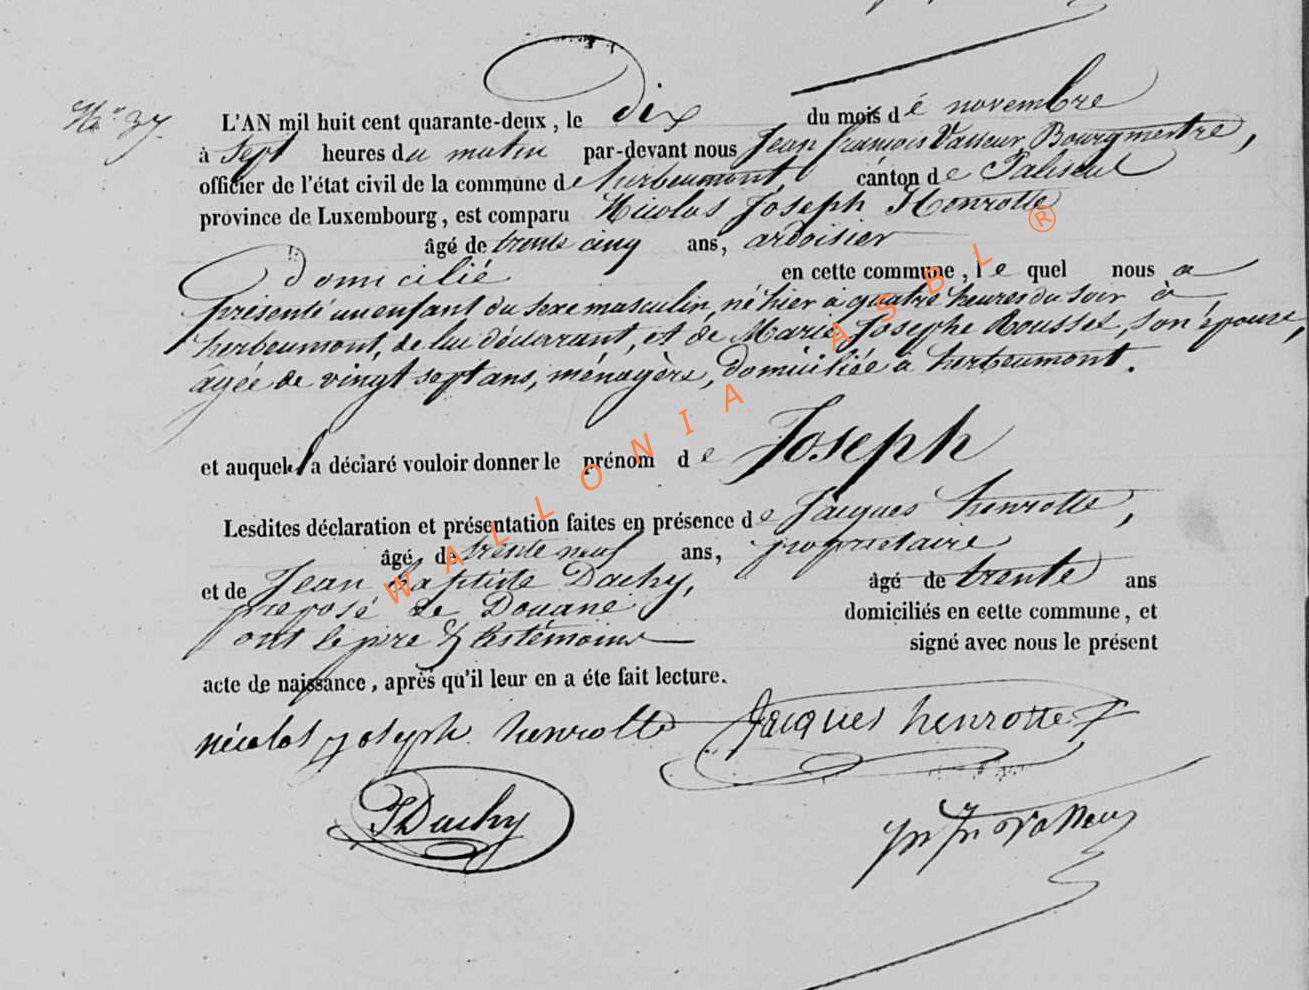 No 37.
L'AN mil huit cent quarante-deux, le dix du mois de novembre
à sept heures du matin par-devant nous Jean françois Vasseur, Bourgmestre,
officier de l'état civil de la commune de herbeumont, canton de Paliseul
province de Luxembourg, est comparu Nicolas Joseph Henrotte
âgé de trente cinq ans, ardoisier
Domicilié en cette commune, lequel nous a
présenté un enfant du sexe masculin, né hier à quatre heures du soir à
herbeumont, de lui déclarant, et de Marie Josephe Rousset, son épouse,
âgée de vingt sept ans, ménagère, domiciliée à herbeumont.
et auquel la déclaré vouloir donner le prénom de Joseph
Lesdites déclaration et présentation faites en présence de Jacques henrotte,
âgé de trente neuf ans, propriétaire
et de Jean baptiste Dachy, âgé de trente ans
preposé de Douane domiciliés en cette commune, et
ont le père & les témoins signé avec nous le présent
acte de naissance, après qu'il leur en a éte fait lecture.
nicolas joseph henrotte Jacques henrotte
JDachy
WALLONIA ASBL ®